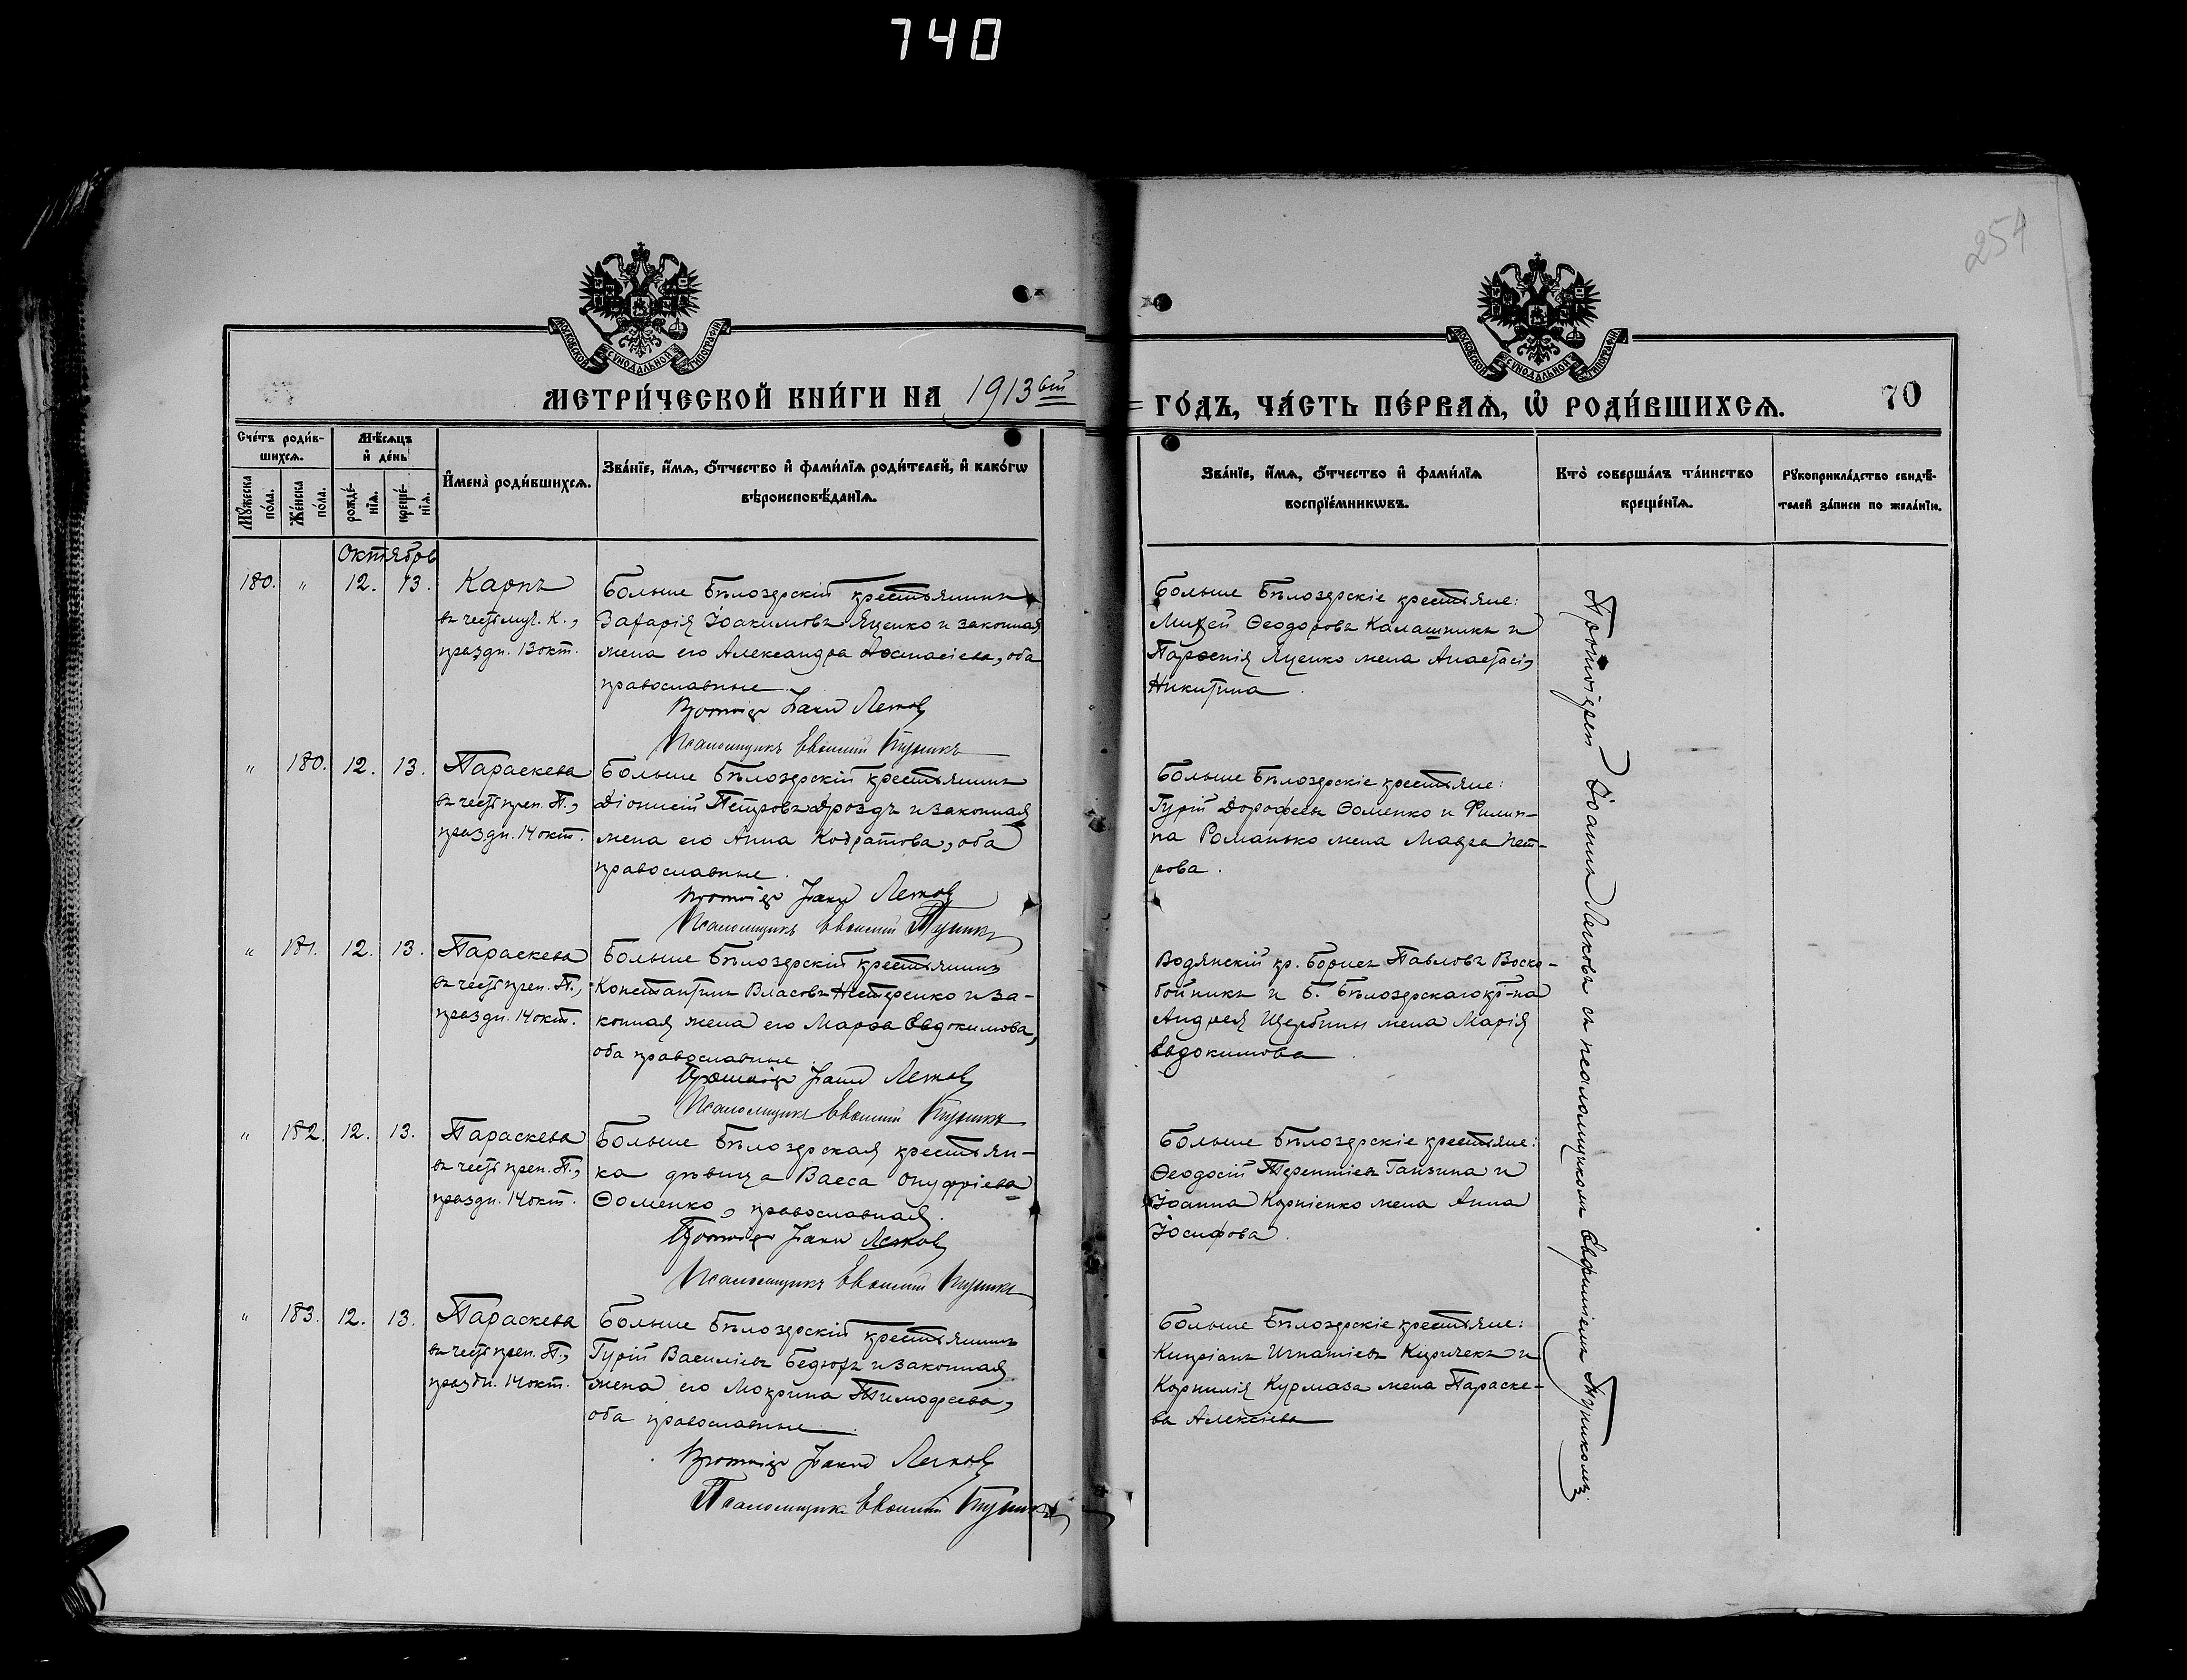 740
254
МОСКОВСКОЙ СУНОДАЛЬНОЙ ТИПОГРАФІИ
МОСКОВСКОЙ СУНОДАЛЬНОЙ ТИПОГРАФІИ
МЕТРИ́ЧЕСКОЙ КНИ́ГИ НА 1913 ый
ГО́ДЪ, ЧА́СТЬ ПЕ́РВАѦ, Ѡ҆ РОДИ́ВШИХСѦ.
70
Сче́тъ роди́в-
шихсѧ.
Мꙋ́жеска по́ла.
Же́нска по́ла.
Мѣ́сѧцъ
и҆ де́нь
рожде́-
нїѧ.
креще́-
нїѧ.
И҆мена̀ роди́вшихсѧ.
Зва́нїе, и҆́мѧ, ѻ҆́тчество и҆ фами́лїѧ роди́телей, и҆ како́гѡ
вѣроисповѣ́данїѧ.
Зва́нїе, и҆́мѧ, ѻ҆́тчество и҆ фами́лїѧ
воспрїе́мникѡвъ.
Кто̀ соверша́лъ та́инство
креще́нїѧ.
Рꙋкоприкла́дство свидѣ́-
телей за́писи по жела́нїю.
Октябрь
180. " 12. 13. Карпъ
въ честь муч. К.,
праздн. 13 окт.
Больше Бѣлозерскій крестьянинъ
Захарія Іоакимовъ Яценко и законная
жена его Александра Аѳанасіева, оба
православные.
Протоіер Іоаннъ Легковъ
Псаломщикъ Евѳимій Тупикъ
Больше Бѣлозерскіе крестьяне:
Михей Ѳеодоровъ Калашникъ и
Парѳенія Яценко жена Анастасія
Никитина.
" 180. 12. 13. Параскева
въ честь преп. П.,
праздн. 14 окт.
Больше Бѣлозерскій крестьянинъ
Діонисій Петровъ Дроздъ и законная
жена его Анна Кодратова, оба
православные.
Протоіер Іоаннъ Легковъ
Псаломщикъ Евѳимій Тупикъ
Больше Бѣлозерскіе крестьяне:
Гурій Дорофеевъ Ѳоменко и Филип-
па Романько жена Мавра Пет-
рова.
" 181. 12. 13. Параскева
въ честь преп. П.,
праздн. 14 окт.
Больше Бѣлозерскій крестьянинъ
Константинъ Власовъ Нестеренко и за-
конная жена его Марѳа Евдокимова,
оба православные.
Протоіер Іоаннъ Легковъ
Псаломщикъ Евѳимій Тупикъ
Водянскій кр. Борисъ Павловъ Воско-
бойникъ и Б. Бѣлозерскаго кр-на
Андрея Щербины жена Марія
Евдокимова.
" 182. 12. 13. Параскева
въ честь преп. П.,
праздн. 14 окт.
Больше Бѣлозерская крестьян-
ка дѣвица Васса Онуфріева
Ѳоменко, православная.
Протоіер Іоаннъ Легковъ
Псаломщикъ Евѳимій Тупикъ
Больше Бѣлозерскіе крестьяне:
Ѳеодосій Терентіевъ Ганзина и
Іоанна Корніенко жена Анна
Іосифова.
" 183. 12. 13. Параскева
въ честь преп. П.,
праздн. 14 окт.
Больше Бѣлозерскій крестьянинъ
Гурій Василіевъ Бедюхъ и законная
жена его Мокрина Тимофеева,
оба православные.
Протоіер Іоаннъ Легковъ
Псаломщикъ Евѳимій Тупикъ
Больше Бѣлозерскіе крестьяне:
Кипріанъ Игнатіевъ Киричекъ и
Корнилія Курмаза жена Параске-
ва Алексіева
Протоіерей Іоаннъ Легковъ съ псаломщикомъ Евфиміемъ Тупикомъ.